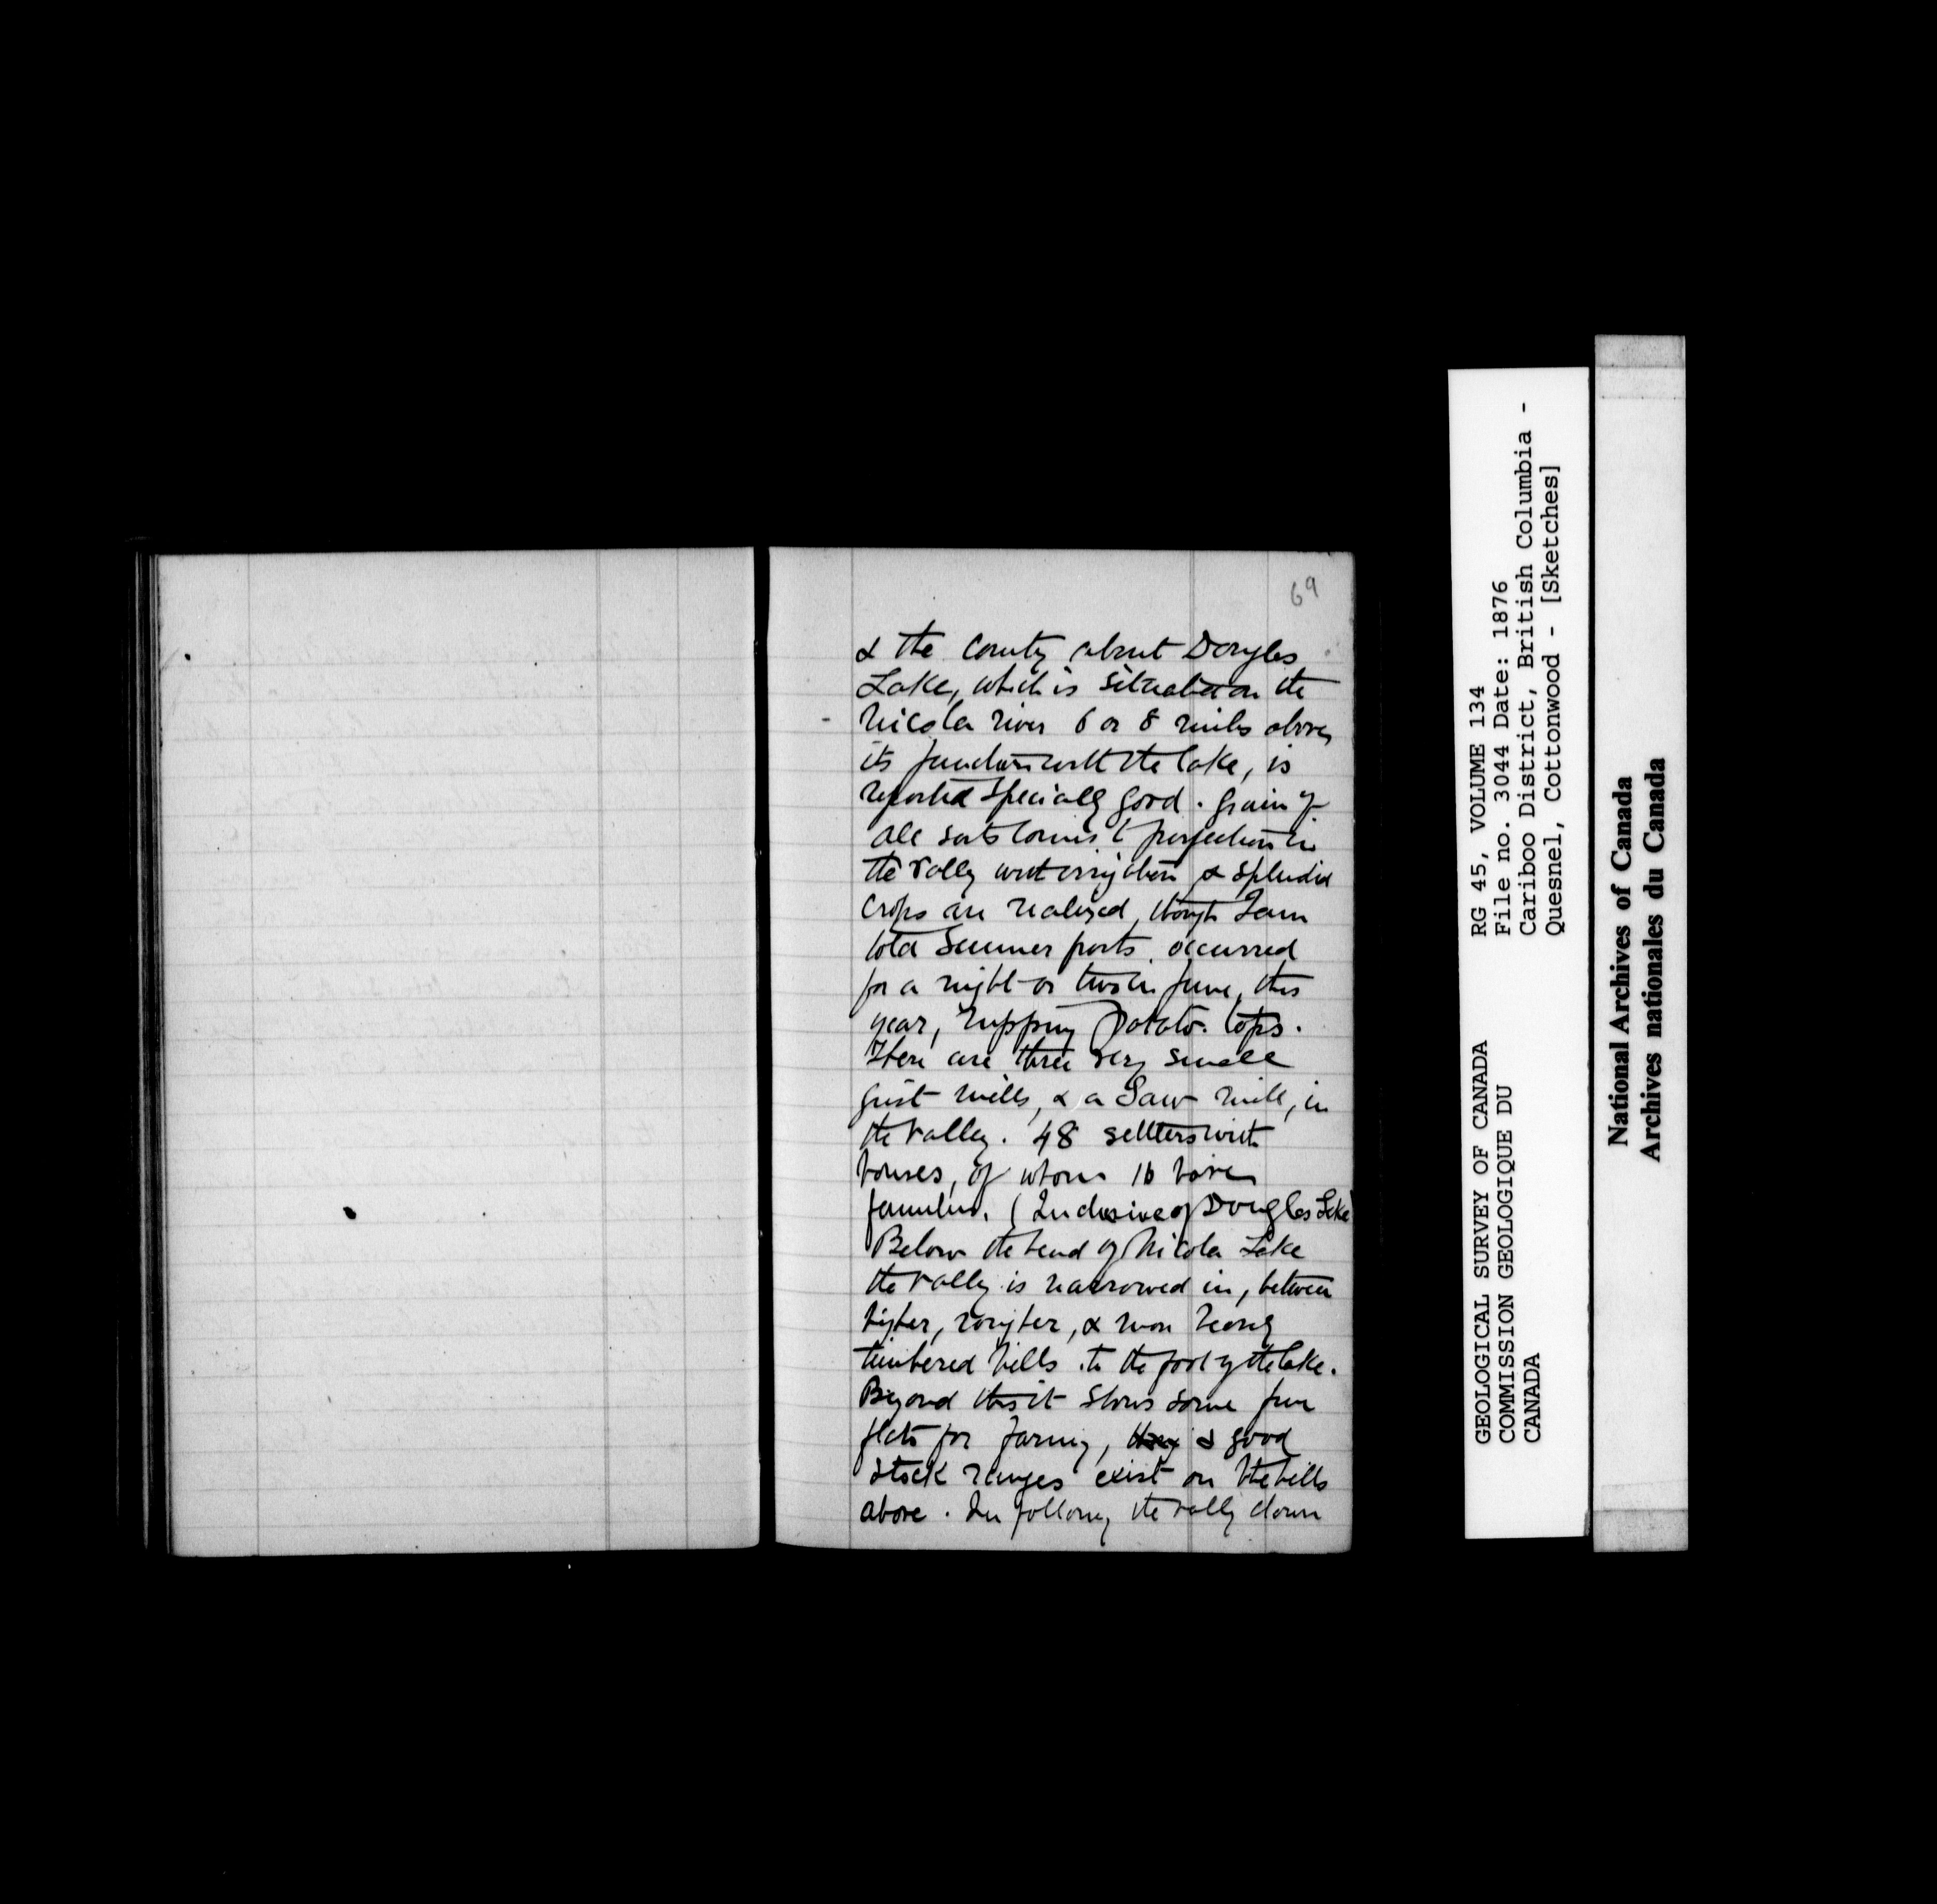 69
& the County about Douglas
Lake, which is situated on the
Nicola river 6 or 8 miles above
its junction with the lake, is
reported specially good. Grain of
all sorts comes to perfection in
the valley with irrigation & splendid
crops are realized, though I am
told Summer frosts occurred
for a night or two in June, this
year, nipping Potato tops.
There are three very small
grist mills, & a Saw mill, in
the valley. 48 settlers with
houses, of whom 16 have
families. (Inclusive of Douglas Lake)
Below the head of Nicola Lake
the valley is narrowed in, between
higher, rougher, & more heavily
timbered hills to the foot of the lake.
Beyond this it shows some fine
flats for farming, & good
stock ranges exist on the hills
above. In following the valley down
GEOLOGICAL SURVEY OF CANADA
COMMISSION GEOLOGIQUE DU
CANADA
RG 45, VOLUME 134
File no. 3044 Date: 1876
Cariboo District, British Columbia -
Quesnel, Cottonwood - [Sketches]
National Archives of Canada
Archives nationales du Canada